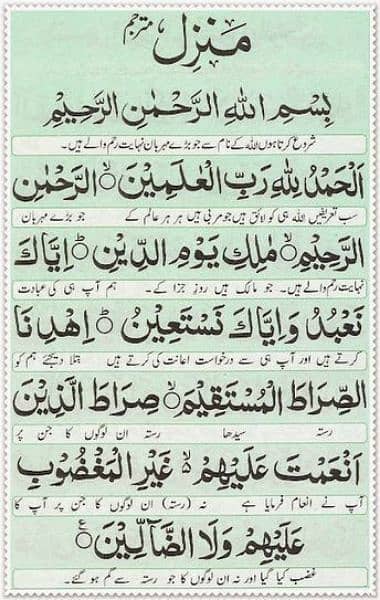 منزل مترجم
بِسْمِ اللهِ الرَّحْمٰنِ الرَّحِيْمِ
شروع کرتا ہوں اللہ کے نام سے جو بڑے مہربان نہایت رحم والے ہیں۔
اَلْحَمْدُ لِلّٰهِ رَبِّ الْعٰلَمِيْنَ ۙ الرَّحْمٰنِ
سب تعریفیں اللہ ہی کو لائق ہیں جو مربی ہیں ہر ہر عالم کے جو بڑے مہربان
الرَّحِيْمِ ۙ مٰلِكِ يَوْمِ الدِّيْنِ ؕ اِيَّاكَ
نہایت رحم والے ہیں۔ جو مالک ہیں روز جزا کے۔ ہم آپ ہی کی عبادت
نَعْبُدُ وَاِيَّاكَ نَسْتَعِيْنُ ؕ اِهْدِنَا
کرتے ہیں اور آپ ہی سے درخواست اعانت کی کرتے ہیں بتلا دیجئے ہم کو
الصِّرَاطَ الْمُسْتَقِيْمَ ۙ صِرَاطَ الَّذِيْنَ
رستہ سیدھا رستہ ان لوگوں کا جن پر
اَنْعَمْتَ عَلَيْهِمْ ۙ غَيْرِ الْمَغْضُوْبِ
آپ نے انعام فرمایا ہے نہ (رستہ) ان لوگوں کا جن پر آپ کا
عَلَيْهِمْ وَلَا الضَّآلِّيْنَ ۧ
غضب کیا گیا اور نہ ان لوگوں کا جو رستہ سے گم ہو گئے۔